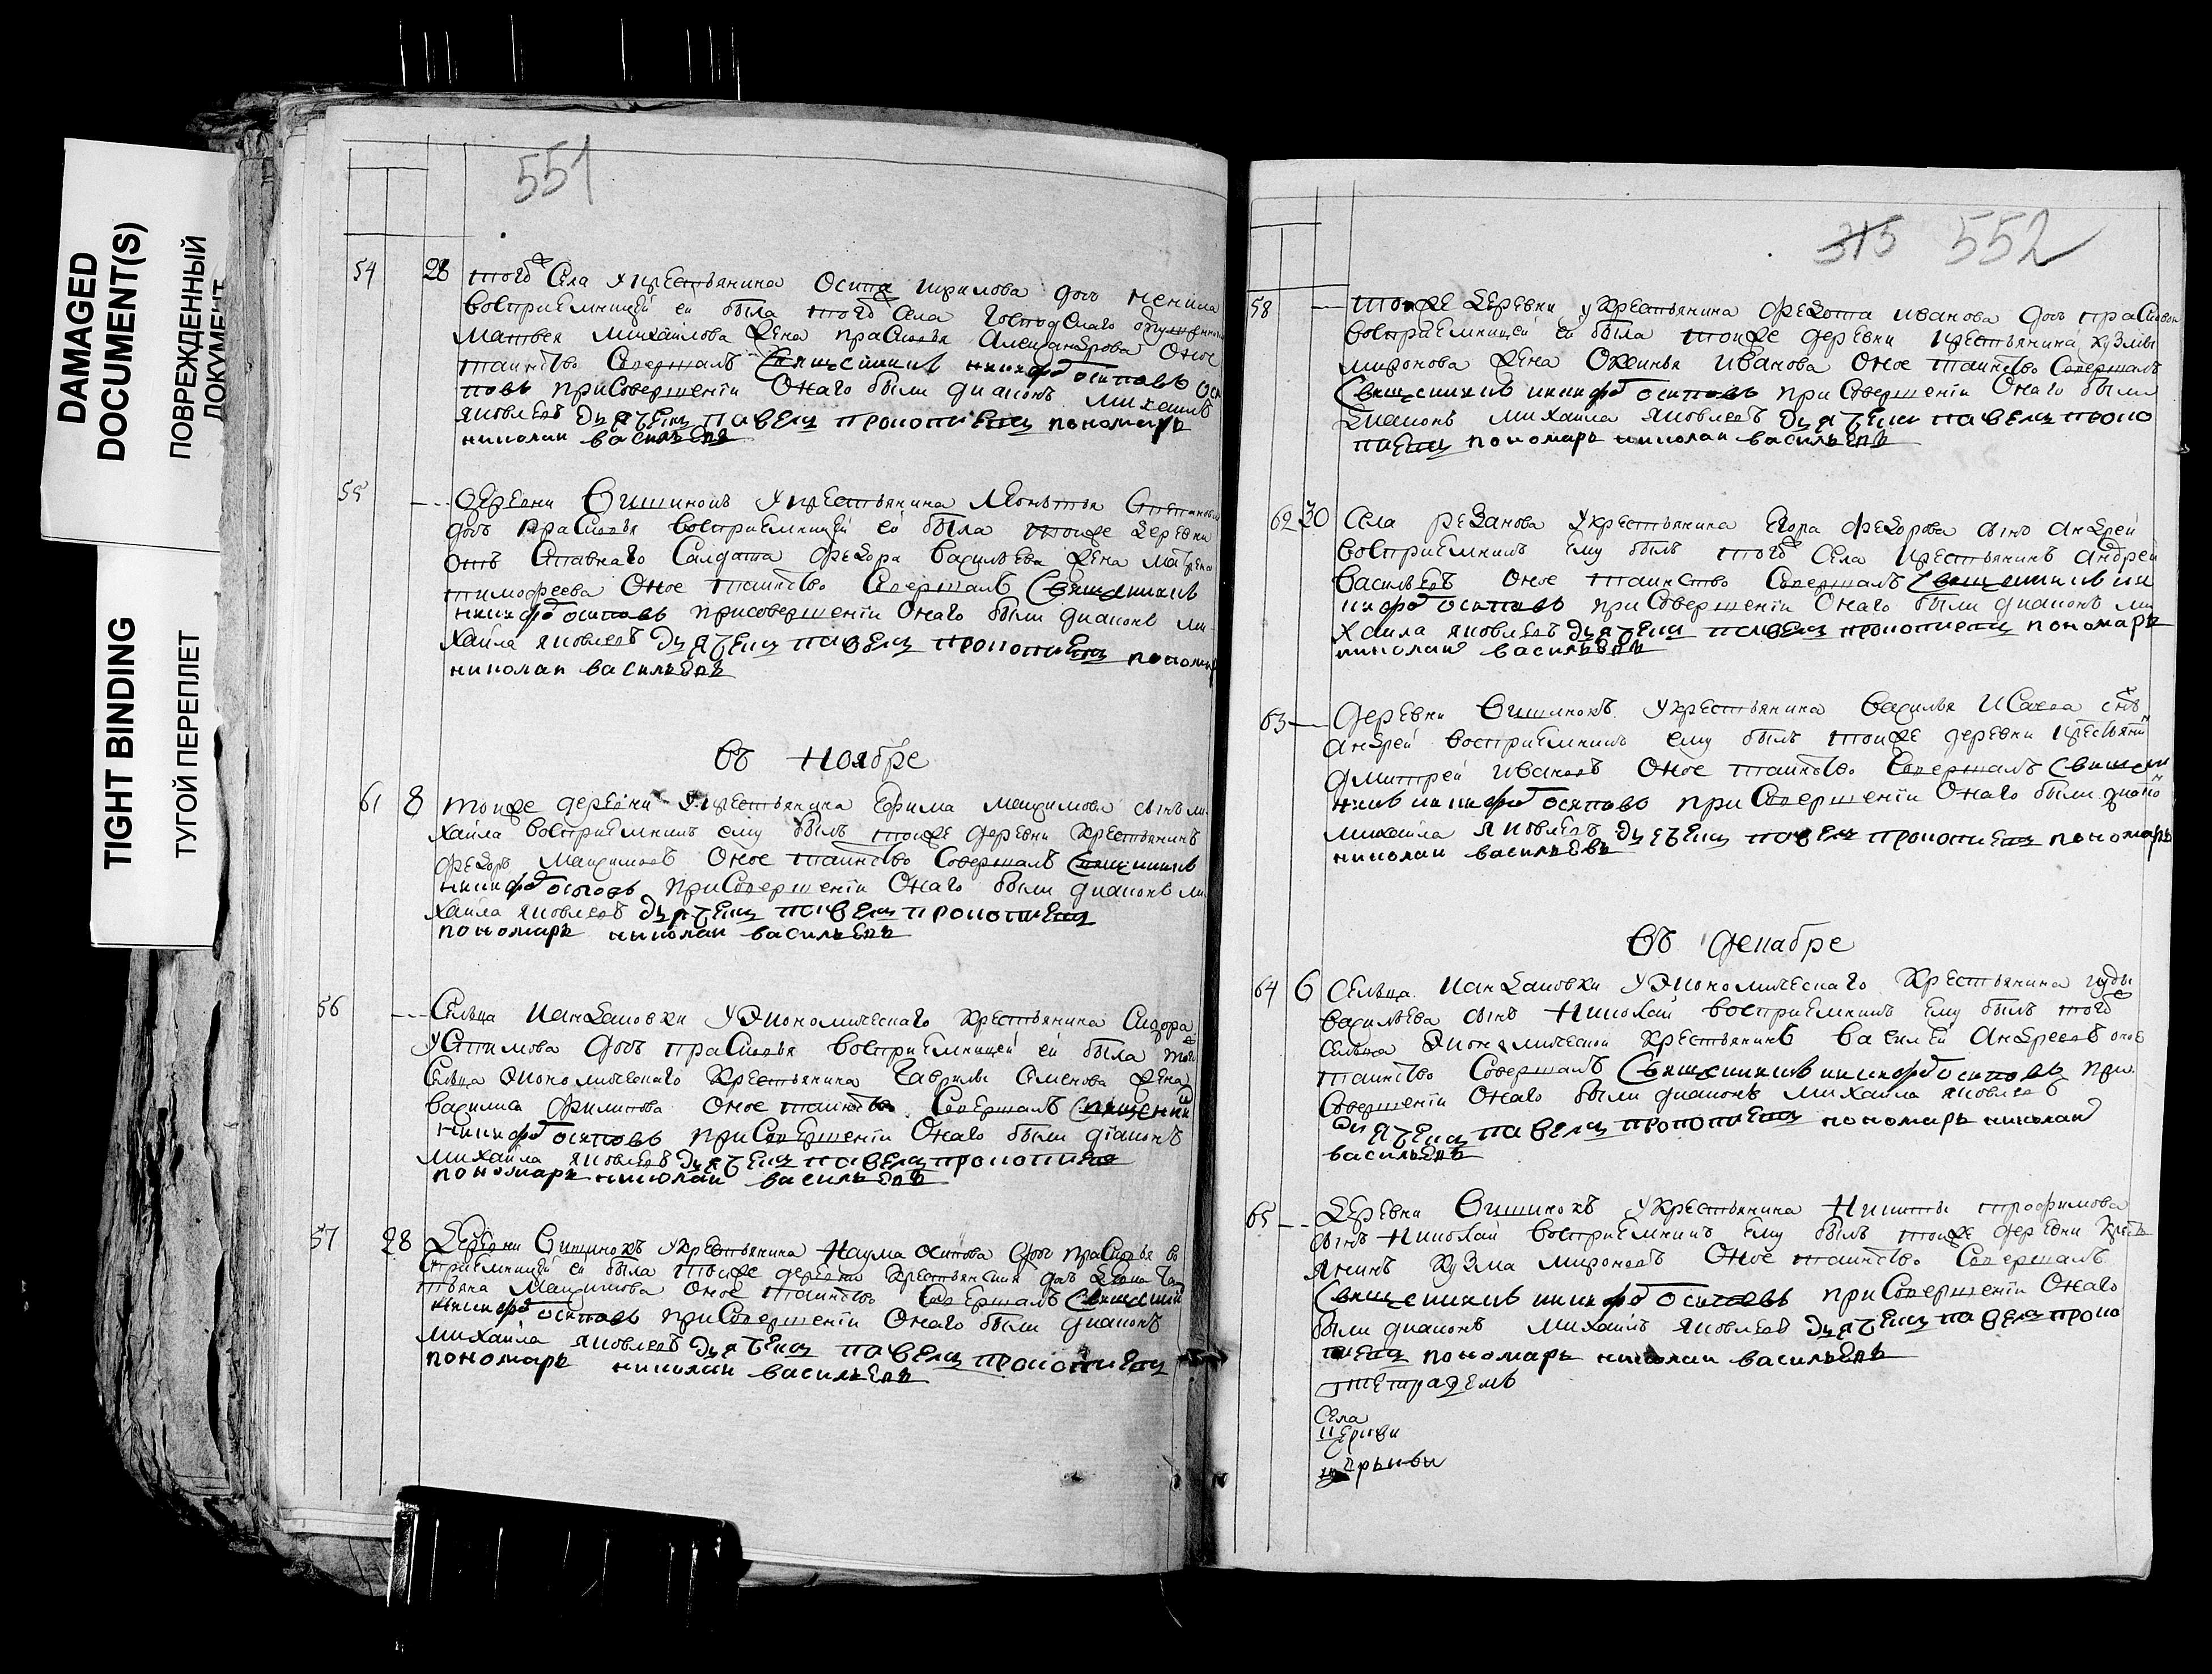 DAMAGED
DOCUMENT(S)
ПОВРЕЖДЕННЫЙ
ДОКУМЕНТ
TIGHT BINDING
ТУГОЙ ПЕРЕПЛЕТ
551
54 28 тогож села укрестьянина Осипа дочь Ненила
восприемницей ей была тогож села господскаго
Матвея Михаилова жена Прасковья Александрова Оное
таинство Совершалъ Священникъ никифоръ осиповъ
при Совершении Онаго были диаконъ Михаилъ
яковлевъ дьячекъ павелъ прокопиевъ пономарь
николаи васильевъ
55 -- деревни Вишнокъ укрестьянина Леонтья Степанова
дочь Прасковья восприемницей ей была тойже деревни
отъ Ставнаго Салдата Федора Васильева жена Матрена
тимофеева Оное таинство Совершалъ Священникъ
никифоръ осиповъ присовершении Онаго были диаконъ ми
хаила яковлевъ дьячекъ павелъ прокопиевъ пономарь
николаи васильевъ
Въ Ноябре
61 8 тойже деревни укрестьянина Ефима Максимова сынъ ми
хаила восприемникъ ему былъ тойже деревни крестьянинъ
федоръ Максимовъ Оное таинство Совершалъ Священникъ
никифоръ осиповъ приСовершении Онаго были диаконъ ми
хаила яковлевъ дьячекъ павелъ прокопиевъ
пономарь николаи васильевъ
56 -- Сельца укономическаго крестьянина Сидора
Устимова дочь праСковья восприемницей ей была тогож
Сельца Экономическаго крестьянина Гаврилы Семенова жена
Василиса Филипова Оное таинство Совершалъ Священникъ
никифоръ осиповъ приСовершении Онаго были диаконъ
Михаила яковлевъ дьячекъ павелъ прокопиевъ
пономарь николаи васильевъ
57 28 деревни Вишнокъ укрестьянина Наума Осипова дочь праСковья во
сприемницей ей была тойже деревни крестьянская
Максимова Оное таинство Совершалъ Священникъ
никифоръ осиповъ приСовершении Онаго были диаконъ
Михаила яковлевъ дьячекъ павелъ прокопиевъ
пономарь николаи васильевъ
315 552
58 -- тойже деревни укрестьянина Федота иванова дочь праСковья
восприемницей ей была тойже деревни крестьянина кузмы
миронова жена Оксинья Иванова Оное таинство Совершалъ
Священникъ никифоръ осиповъ при Совершении Онаго были
диаконъ михаила яковлевъ дьячекъ павелъ проко
пиевъ пономарь николаи васильевъ
62 30 Села резанова укрестьянина Егора федорова сынъ андрей
восприемникъ ему былъ тогож села крестьянинъ андрей
васильевъ оное таинство Совершалъ Священникъ ни
кифоръ осиповъ при Совершении Онаго были диаконъ ми
хаила яковлевъ дьячекъ павелъ прокопиевъ пономарь
николаи васильевъ
63 -- деревни Вишнокъ укрестьянина василья Исаева сынъ
андрей восприемникъ ему былъ тойже деревни крестьянинъ
дмитрей ивановъ Оное таинство Совершалъ Священ
никъ никифоръ осиповъ при Совершении Онаго были диаконъ
михаила яковлевъ дьячекъ павелъ прокопиевъ пономарь
николаи васильевъ
Въ декабре
64 6 Сельца укономическаго крестьянина
васильева сынъ Николай восприемникъ ему былъ тогож
сельца Экономической крестьянинъ василей андреевъ оное
таинство Совершалъ Священникъ никифоръ осиповъ при
Совершении Онаго были диаконъ михаила яковлевъ
дьячекъ павелъ прокопиевъ пономарь николаи
васильевъ
65 -- деревни Вишнокъ укрестьянина Никиты трофимова
сынъ Николай восприемникъ ему былъ тойже деревни кресть
янинъ кузма мироновъ Оное таинство Совершалъ
Священникъ никифоръ осиповъ приСовершении Онаго
были диаконъ михаилъ яковлевъ дьячекъ павелъ проко
пиевъ пономарь николаи васильевъ
Села